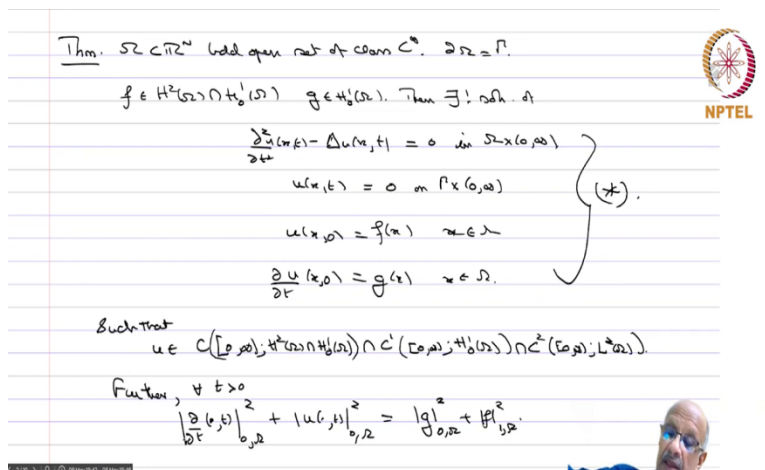 Thm. Ω ⊂ ℝᴺ bdd open set of class C^∞. ∂Ω = Γ.
f ∈ H²(Ω) ∩ H₀¹(Ω) g ∈ H₀¹(Ω). Then ∃! soln. of
∂²u/∂t² (x,t) − Δu(x,t) = 0 in Ω×(0,∞)
u(x,t) = 0 on Γ×(0,∞)
(*).
u(x,0) = f(x) x ∈ Ω
∂u/∂t (x,0) = g(x) x ∈ Ω.
Such that
u ∈ C([0,∞); H²(Ω)∩H₀¹(Ω)) ∩ C¹([0,∞); H₀¹(Ω)) ∩ C²([0,∞); L²(Ω)).
Further, ∀ t>0
|∂/∂t (·,t)|²₀,Ω + |u(·,t)|²₀,Ω = |g|²₀,Ω + |f|²₁,Ω.
NPTEL